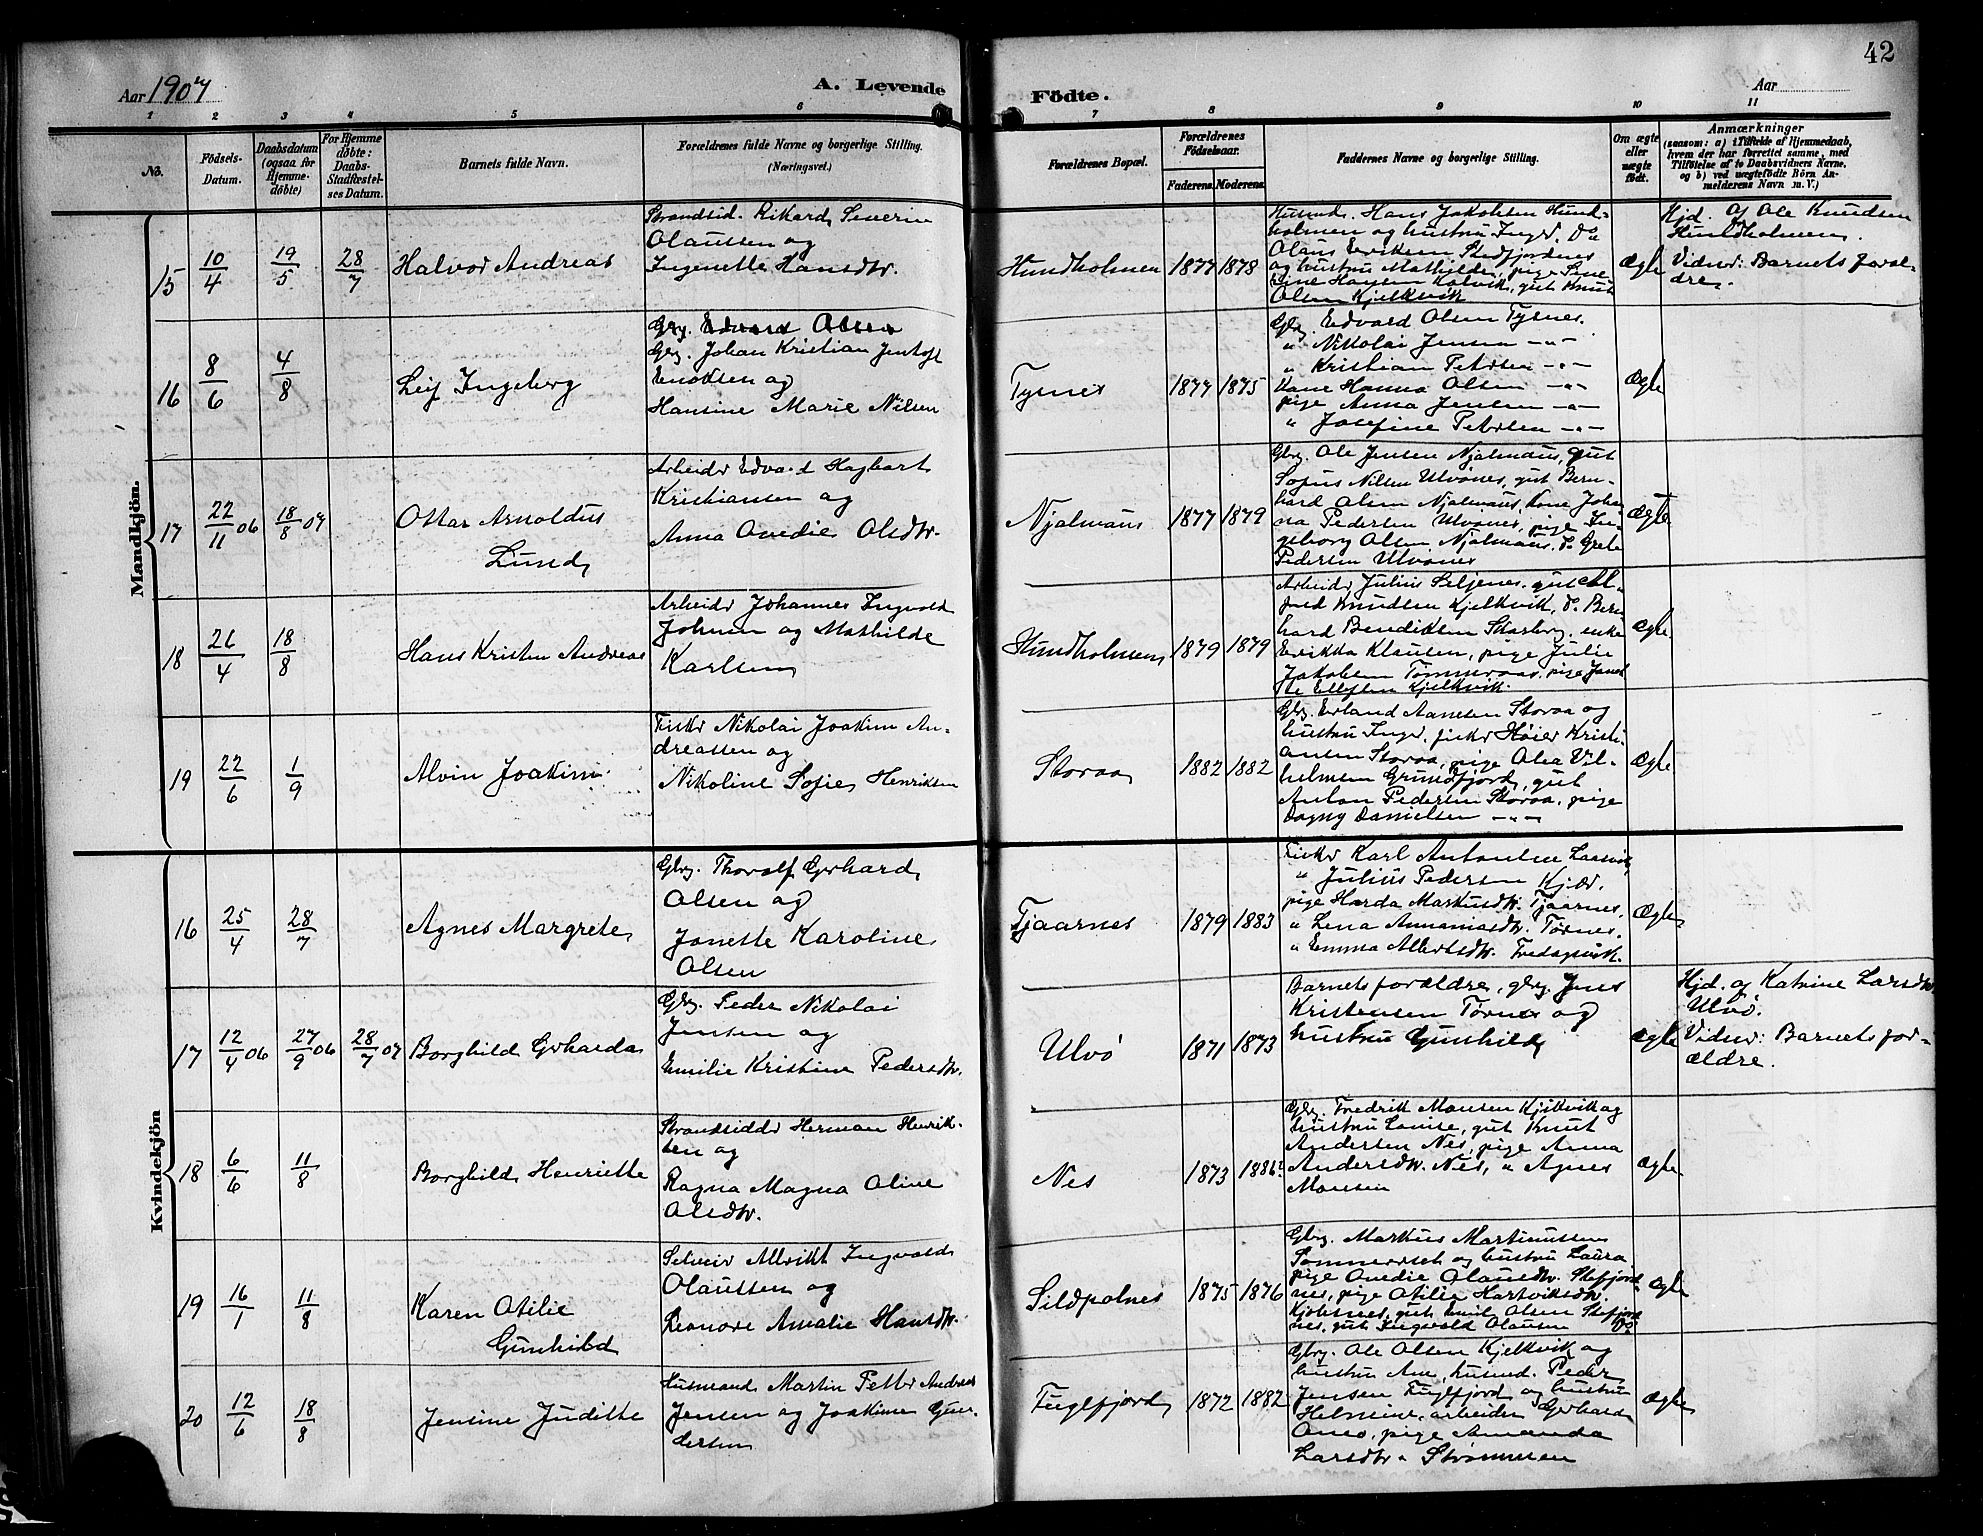 42
Aar 1907
A. Levende
Födte.
Aar
1 2 3 4 5 6 7 8 9 10 11
No.
Födsels-Datum.
Daabsdatum (ogsaa for Hjemme-döbte)
For Hjemme döbte: Daabs Stadfæstel-ses Datum.
Barnets fulde Navn.
Forældrenes fulde Navne og borgerlige Stilling. (Næringsvei.)
Forældrenes Bopæl.
Forældrenes Födselsaar.
Faderens. Moderens.
Faddernes Navne og borgerlige Stilling.
Om ægte eller uægte födt.
Anmærkninger
(saasom: a) i Tilfælde af Hjemmedaab, hvem der har forrettet samme, med Tilföielse af to Daabsvidners Navne, og b) ved uægtefödte Börn An-melderens Navn m. V.)
Mandkjön.
15 10/4 19/5 28/7 Halvor Andreas
Strandsid. Rikard Severin
Olaussen og
Ingenette Hansdtr.
Hundholmen 1877 1878
Husmd. Hans Jakobsen Hund-
holmen og hustru Inger, Do
Olaus Eriksen Stedfjordnes
og hustru Mathilde, pige
Hansen Kalvik, gut Knut
Olsen Kjelkvik
Ægte
Hjd. af Ole Knudsen
Hundholmen.
Vidner: Barnets foræl-
dre.
16 8/6 4/8 Leif Ingeberg
Gbr. Edvard Olsen
Gbr. Johan Kristian Jentoft
Enoksen og
Hansine Marie Nilsen
Tysnes 1877 1875
Gbr. Edvard Olsen Tysnes.
" Nikolai Jensen -"-
" Kristian Petersen -"-
Kone Hanna Olsen -"-
pige Anna Jensen -"-
" Josefine Petersen -"-
Ægte
17 22/11 06 18/8 07 Ottar Arnoldus
Lund
Arbeider Edvard Hagbart
Kristiansen og
Anna Ovedie Olsdtr.
Njalmaus 1877 1879
Gbr. Ole Jensen Njalmaus, gut
Sofus Nilsen Ulvønes, gut Bern-
hard Olsen Njalmaus, Kone Johan-
na Pedersen Ulvønes, pige In-
geborg Olsen Njalmaus, do Grete
Pedersen Ulvønes
Ægte
18 26/4 18/8 Hans Kristen Andreas
Arbeider Johannes Ingvald
Johnsen og Mathilde
Karlsen
Hundholmen 1879 1879
Arbeider Julius Seljenes, gut Al-
fred Knudsen Kjelkvik, do Bern-
hard Bendiktsen, enke
Erikka Klausen, pige Julie
Jakobsen Tømmeraas, pige
Ellefsen Kjelkvik.
Ægte
19 22/6 1/9 Alvin Joakim
Fisker Nikolai Joakim An-
dreassen og
Nikoline Sofie Henriksen
Storaa 1882 1882
Gbr. Erland Aanesen Storaa og
hustru Inger, fisker Høier Kristi-
ansen Storaa, pige Olea Vil-
helmsen Grundfjord, gut
Anton Pedersen Storaa, pige
Dagny Danielsen -"-
Ægte
Kvindekjön
16 25/4 28/7 Agnes Margrete
Gbr. Thoralf Gerhard
Olsen og
Janette Karoline
Olsen
Tjaarnes 1879 1883
Fisker Karl Antonsen
" Julius Pedersen Kjær.
pige Harda Markusdtr. Tjaarnes.
" Lena Annaniasdtr. Tørnes.
" Emma Albertsdtr. Fredagsvik.
Ægte
17 12/4 06 27/9 06 28/7 07 Borghild Gerharda
Gbr. Peder Nikolai
Jensen og
Emilie Kristine Pedersdtr.
Ulvö 1871 1873
Barnets forældre, gbr. Jens
Kristensen Tørnes og
hustru Gunhild
Ægte
Hjd. af Katrine Larsdtr.
Ulvö.
Vidner: Barnets for-
ældre.
18 6/6 11/8 Borghild Henriette
Strandsidder Herman Henrik-
sen og
Ragna Magna Oline
Olsdtr.
Nes 1873 1886
Gbr. Fredrik Monsen Kjelkvik og
hustru Louise, gut Knut
Andersen Nes, pige Anna
Andersdtr. Nes, " Agnes
Monsen
Ægte
19 16/1 11/8 Karen Otilie
Gunhild
Selveier Albrikt Ingvald
Olaussen og
Leonore Amalie Hansdtr.
Sildpolnes 1875 1876
Gbr. Markus Martinussen
Sommerset og hustru Laura
pige Ovedie Olausdtr. Stefjord-
nes, pige Otilie Hartviksdtr.
Kjobsnes, gut Emil Olsen Stefjord-
nes, gut Ingvald Olausen Do
Ægte
20 12/6 18/8 Jensine Juditte
Husmand Martin Petter Andreas
Jensen og Joakime Gun-
dersen
Fuglfjord 1872 1882
Gbr. Ole Olsen Kjelkvik og
hustru Ane, husmd. Peder
Jensen Fuglfjord og hustru
Helmine, arbeider Gerhard
pige Amanda
Larsdtr. Strømmen
Ægte